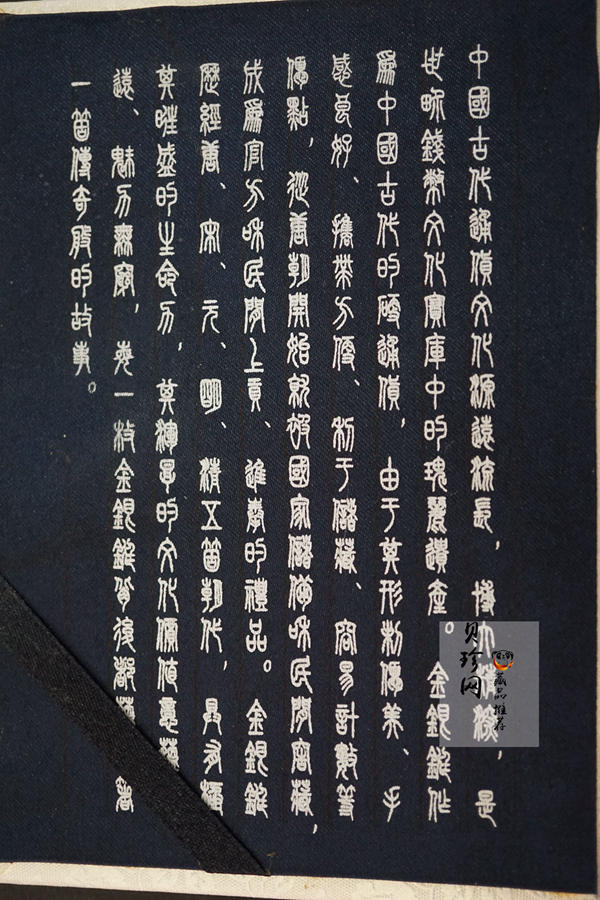 中國古代通貨文化源遠流長，博大精深，是
世界錢幣文化寶庫中的瑰麗遺產。金銀錠作
爲中國古代的硬通貨，由于其形制優美、手
感良好、攜帶方便、利于儲藏、容易計數等
優點，從唐朝開始就被國家儲備和民間窖藏，
成爲官方和民間上貢、進奉的禮品。金銀錠
歷經唐、宋、元、明、清五箇朝代，具有極
其旺盛的生命力，其渾厚的文化價值意蘊
遠、魅力無窮，每一枚金銀錠背後都蘊 着
一箇傳奇般的故事。
贝珍网
藏品推荐